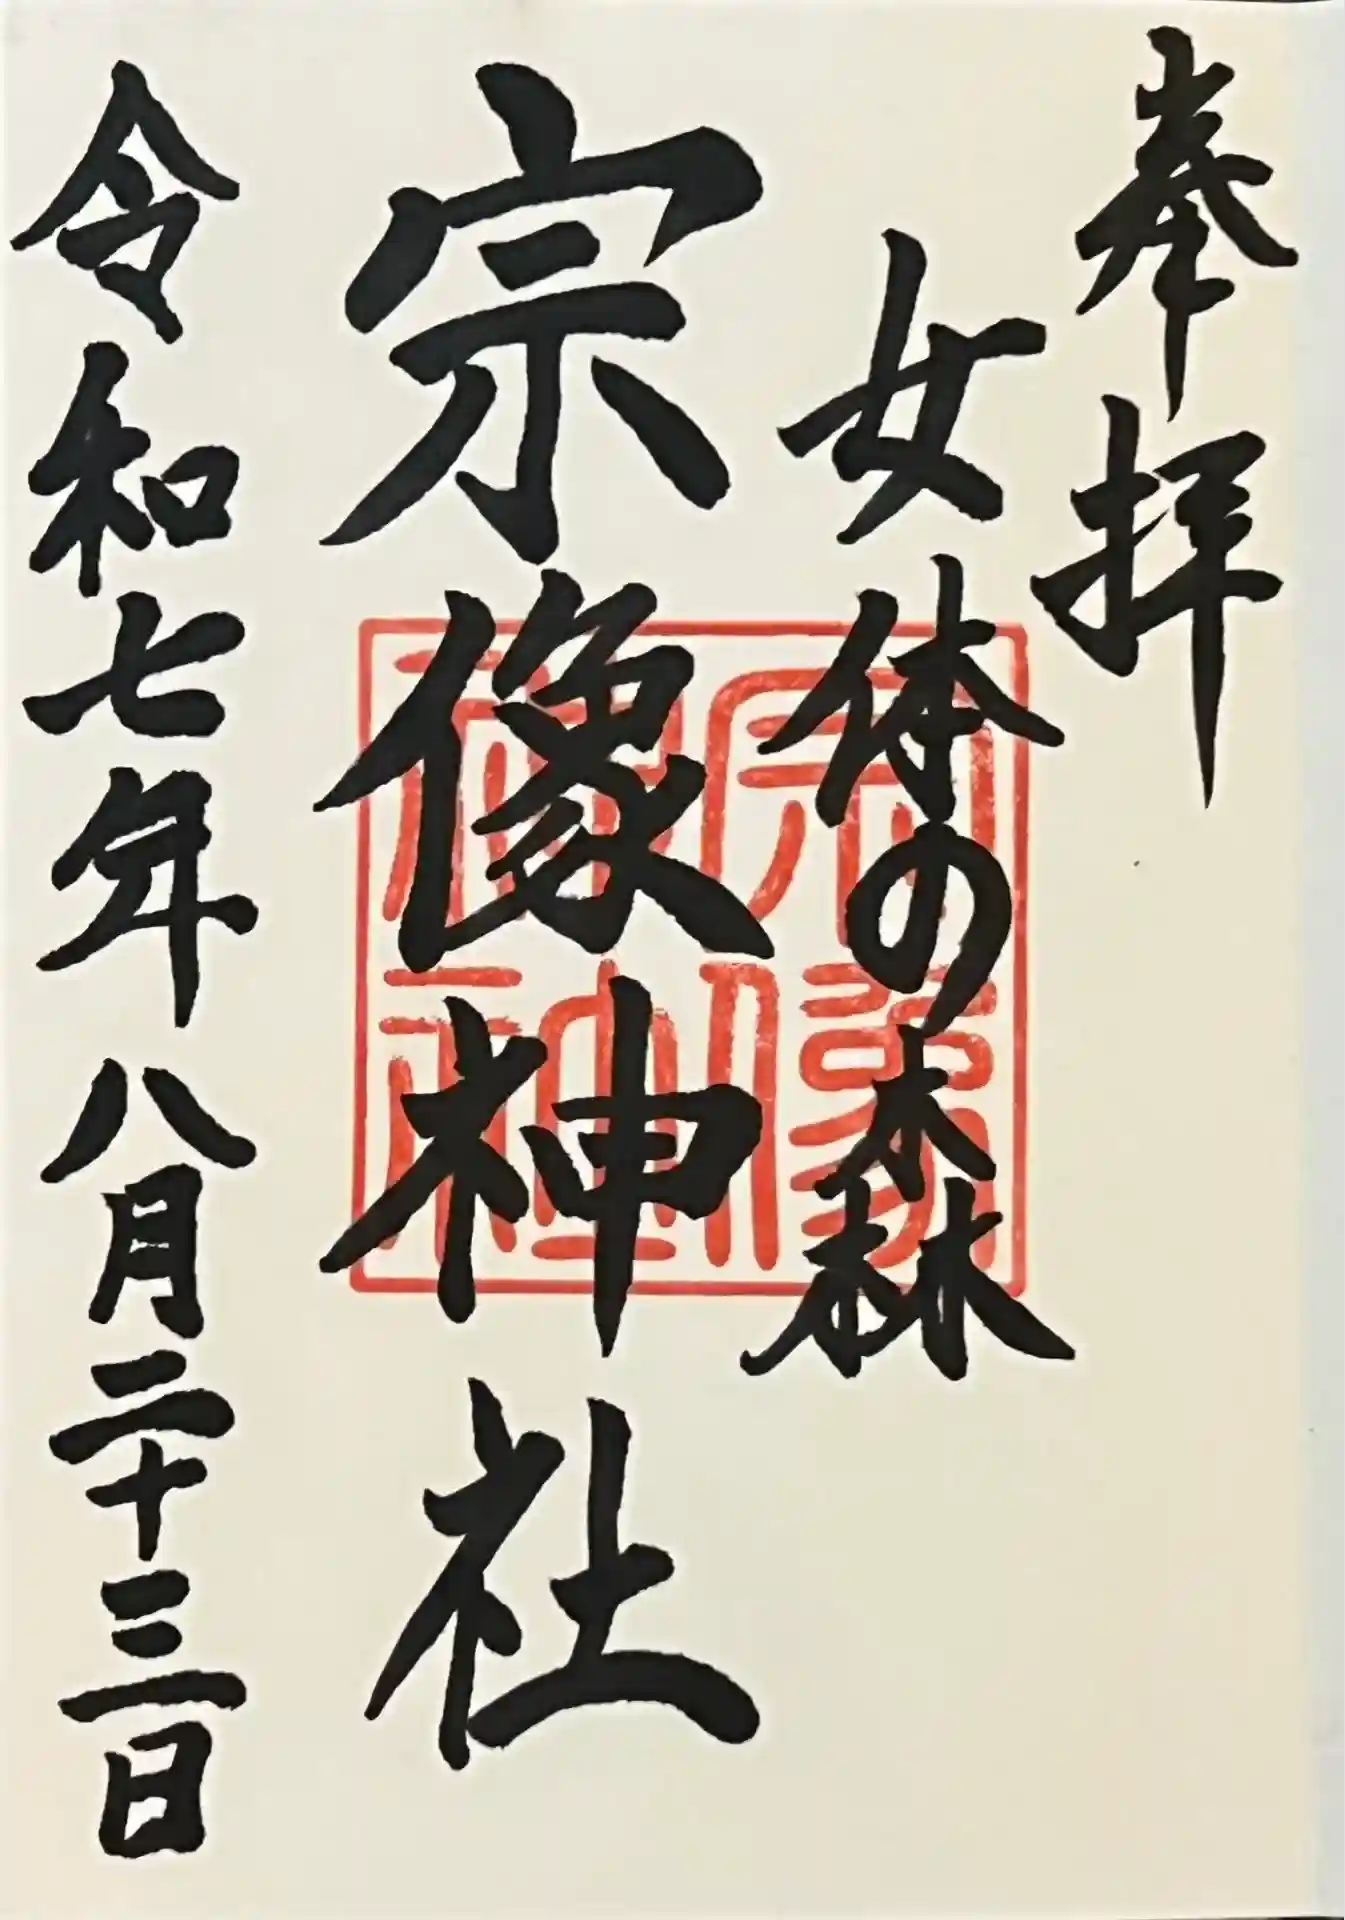 奉拝
女体の森
宗像神社
宗像
神社
令和七年八月二十三日